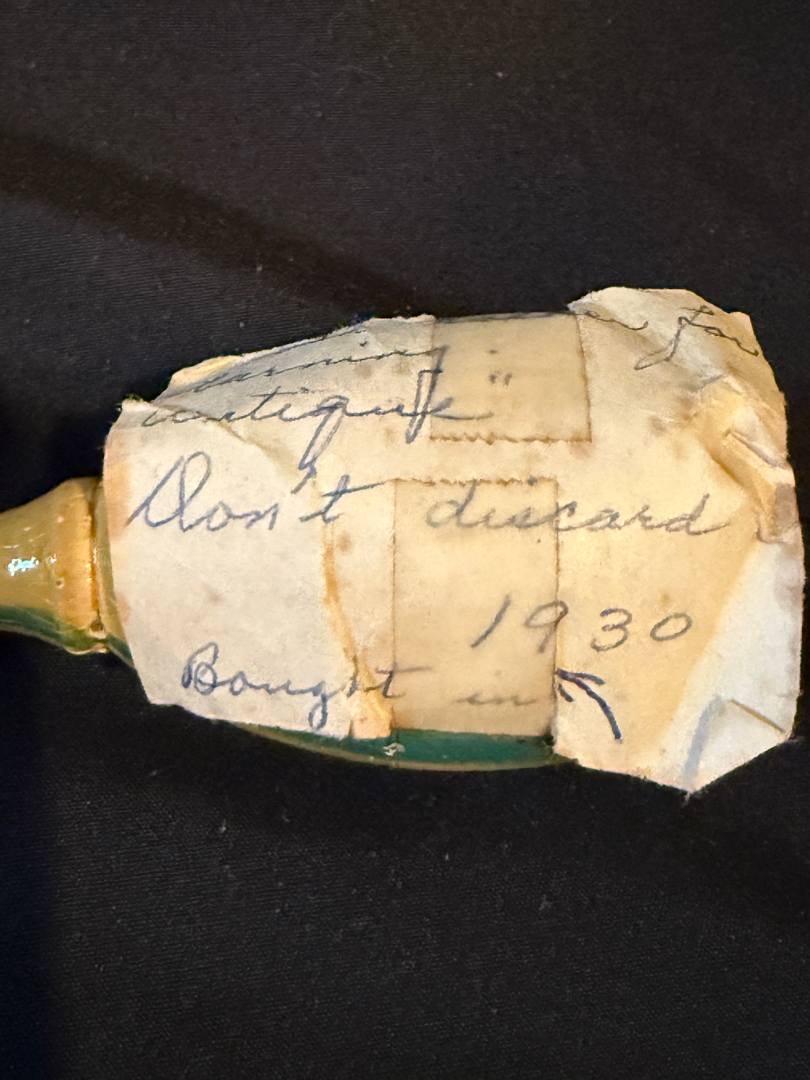 for
antique"
Don't discard
1930
Bought in